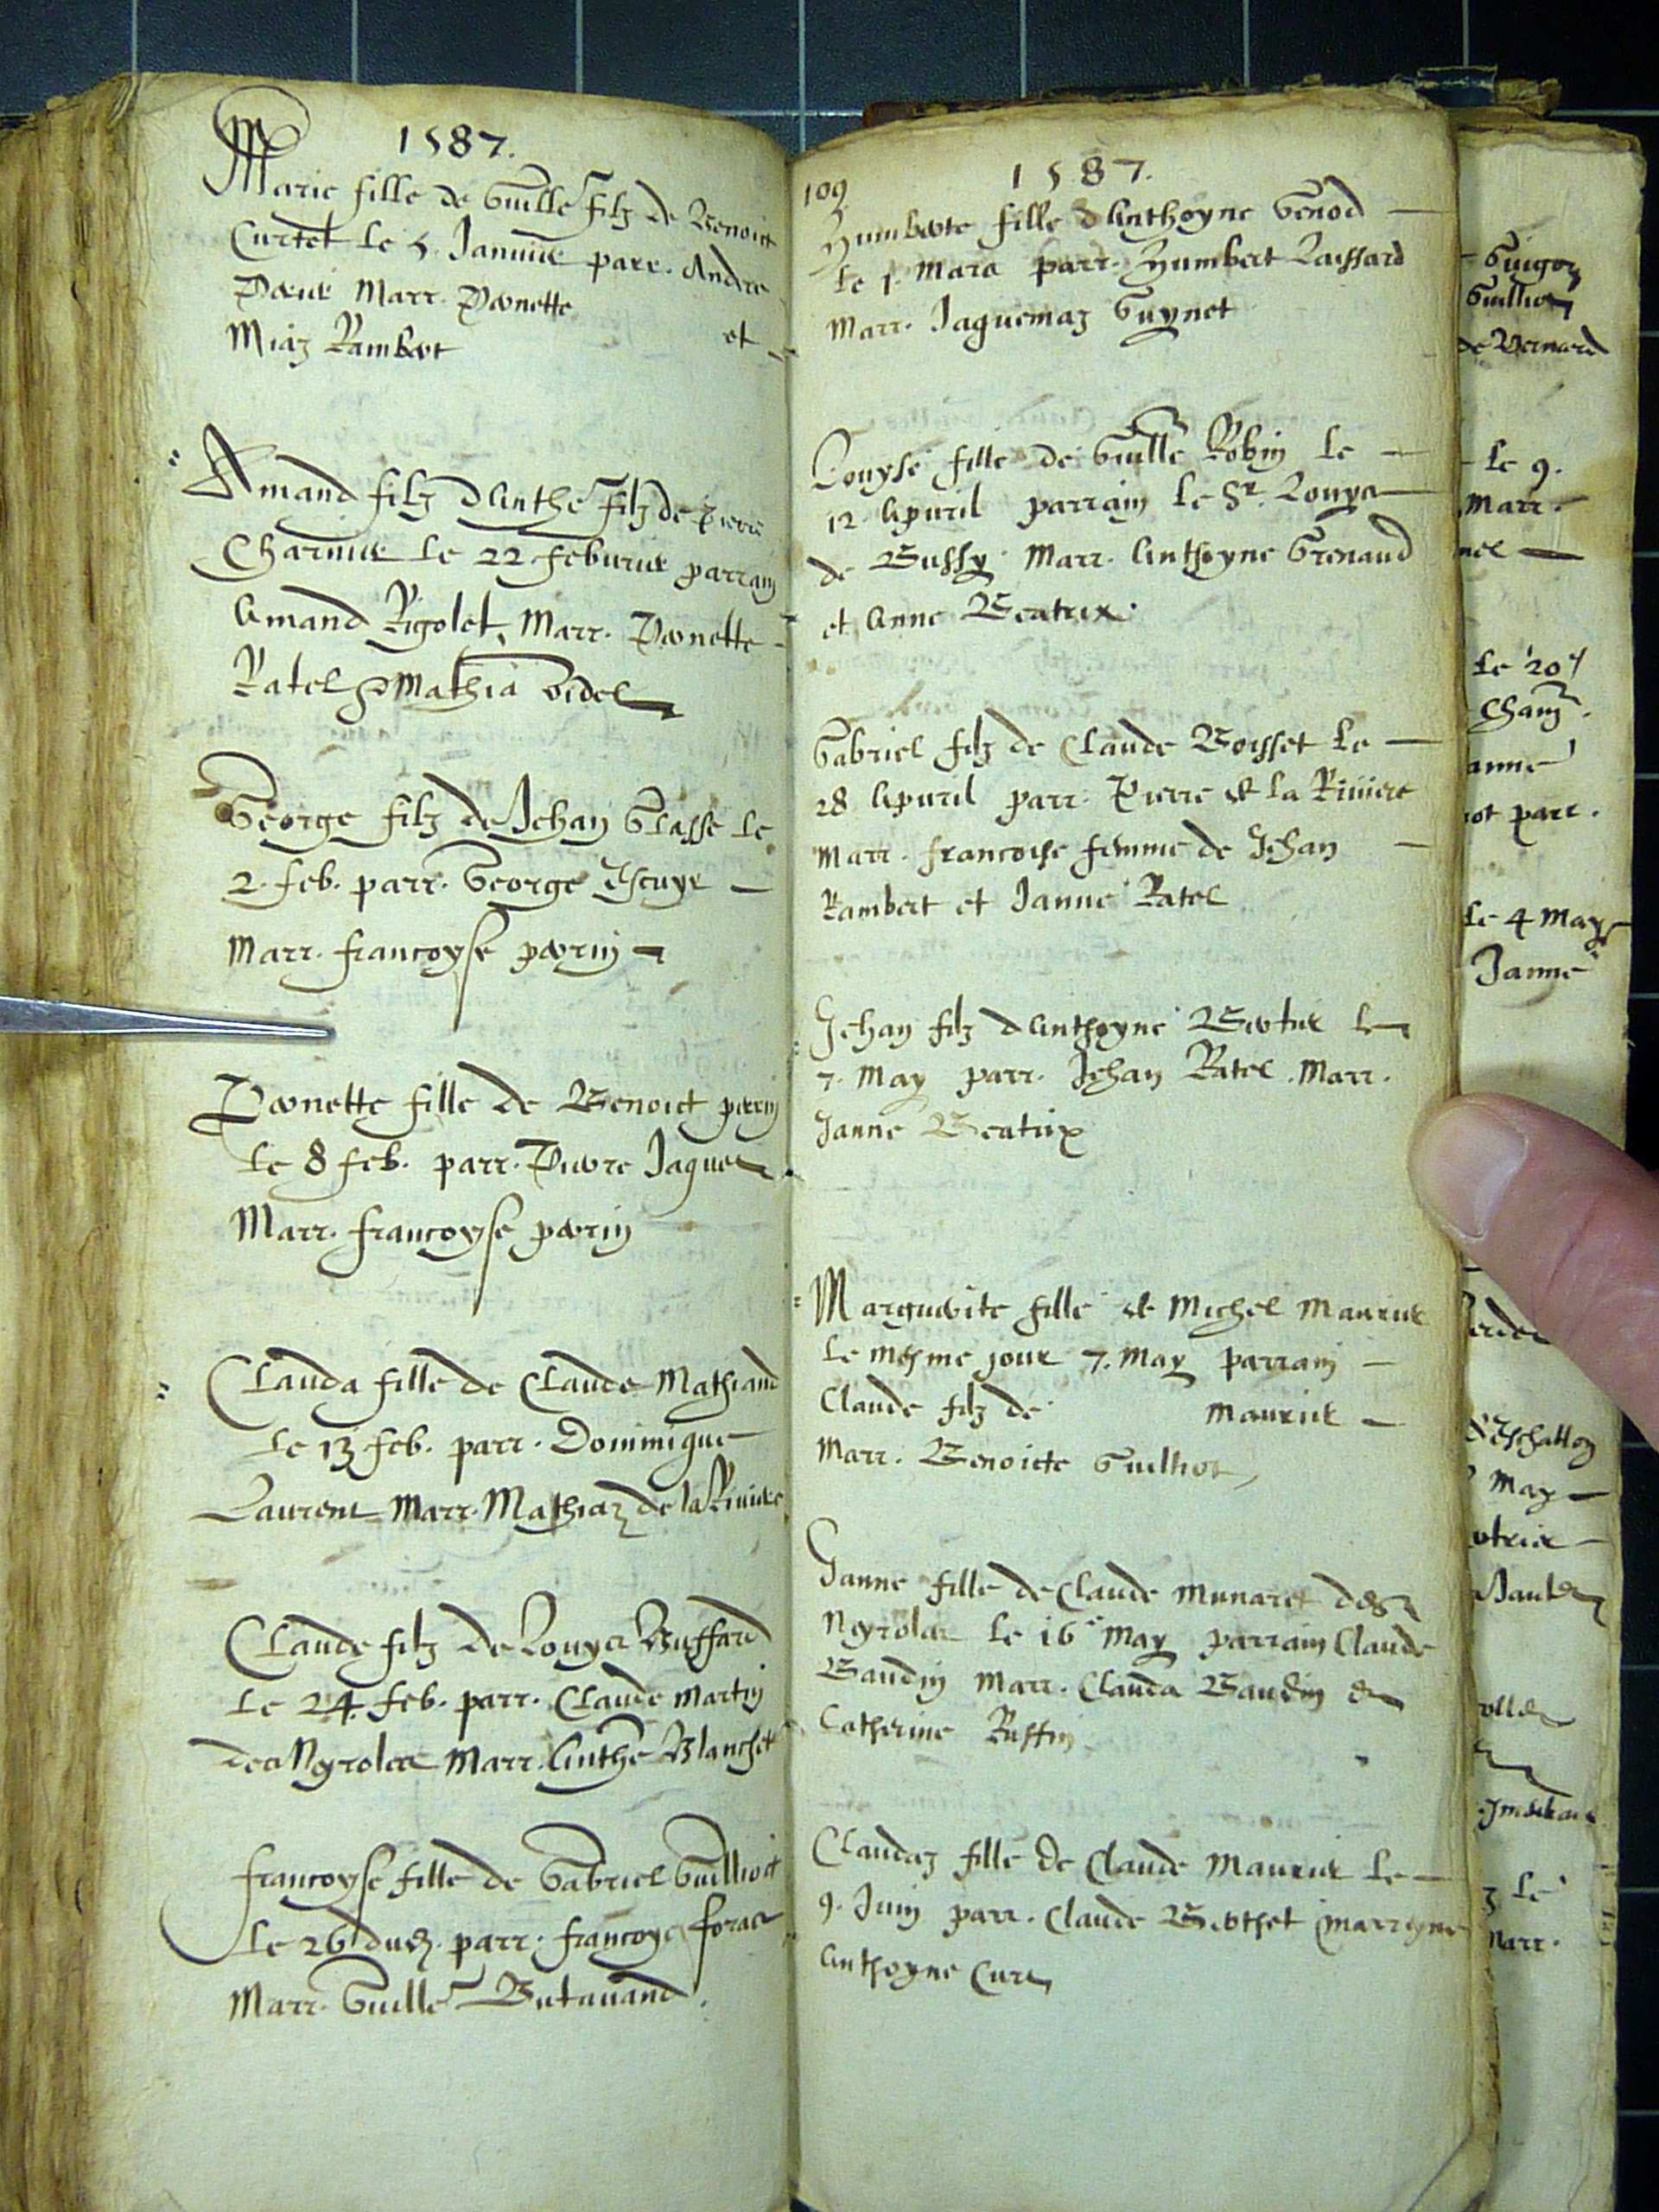 1587.
Marie fille de Guille filz de Benoict
Curtet le 5. Januier parr. Andre
Marr. Pernette
Miaz Rambert et
Amand filz d Anthe filz de Pierre
Charuier le 22 feburier parrain
Amand Rigolet, Marr. Pernette
Ratel & Mathia Videl
George filz de Jehan Grasse le
2. feb. parr. George Escuyer
Marr. francoyse perrin
Pernette fille de Benoict perrin
le 8 feb. parr. Pierre Jaques
Marr. francoyse perrin
Clauda fille de Claude Mathiand
le 13 feb. parr. Dominique
Laurent Marr. Mathiaz de la Riuiere
Claude filz de Louys Buffard
le 24 feb. parr. Claude Martin
des Nyroles Marr. Anthe Blanchet
francoyse fille de Gabriel Guilliot
le 26 dud. parr. francoys foras
Marr. Guille Butauand.
109
1587.
Humberte fille d Anthoyne Genod
le 1. Mars parr. Humbert Laissard
Marr. Jaquemaz Guynet
Louyse fille de Guille Robin le
12. Apuril parrain le Sr. Louys
de Bussy Marr. Anthoyne Grenaud
et Anne Beatrix.
Gabriel filz de Claude Boisset le
28 Apuril parr. Pierre de la Riuiere
Marr. francoise femme de Jehan
Rambert et Janne Ratel
Jehan filz d Anthoyne Bertier le
7. May parr. Jehan Ratel. Marr.
Janne Beatrix
Marguerite fille de Michel Maurier
le mesme jour 7. May parrain
Claude filz de Maurier
Marr. Benoicte Guilliot
Janne fille de Claude Munaret des
Nyroles le 16 May parrain Claude
Baudin Marr. Clauda Baudin &
Catherine Ruffin
Claudaz fille de Claude Maurier le
9. Juin parr. Claude Berthet marrayne
Anthoyne Curt
Guigon
Guillion
de Bernard
le 9.
Marr.
le 20
anne
parr.
le 4 May
Janne
May
le
Marr.